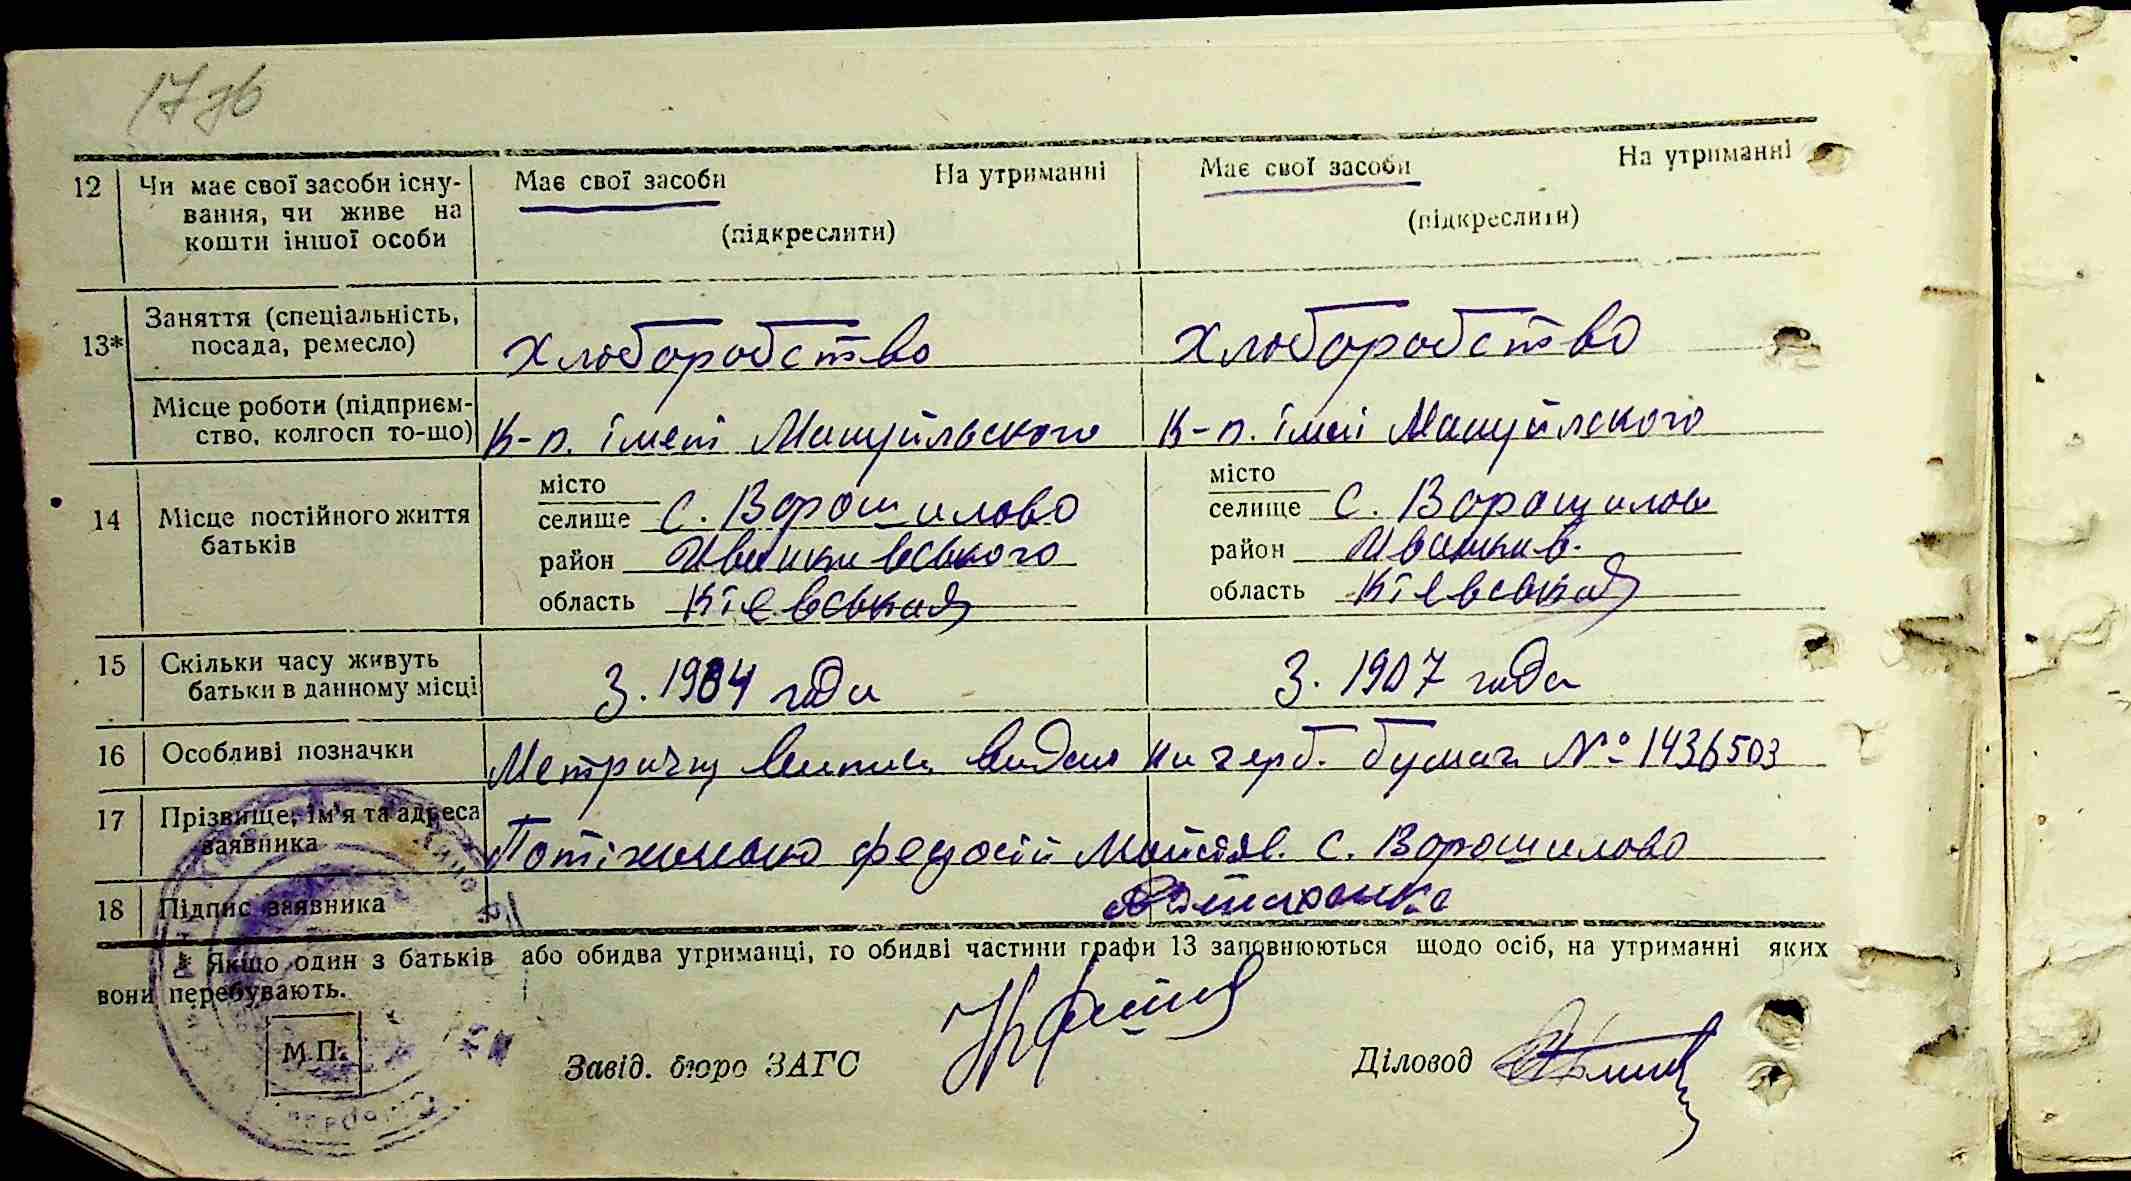 17 зв
12 Чи має свої засоби існу- Має свої засоби На утриманні Має свої засоби На утриманні
вання, чи живе на
кошти іншої особи (підкреслити) (підкреслити)
13* Заняття (спеціальність,
посада, ремесло) Хлоборобство Хлоборобство
Місце роботи (підприєм-
ство, колгосп то-що) К-п. імені Мануйльского К-п. імені Мануйлского
14 Місце постійного життя
батьків
місто місто
селище с. Ворошилово селище с. Ворошилов
район Иванкивського район Иванкив.
область Кіевськая область Кіевськая
15 Скільки часу живуть
батьки в данному місці З. 1904 года З. 1907 года
16 Особливі позначки Метричну випись видано на герб. бумаги № 1436503
17 Прізвище, ім'я та адреса
заявника с. Ворошилово
18 Підпис заявника
* Якщо один з батьків або обидва утриманці, то обидві частини графи 13 заповнюються щодо осіб, на утриманні яких
вони перебувають.
М.П.
Завід. бюро ЗАГС Діловод